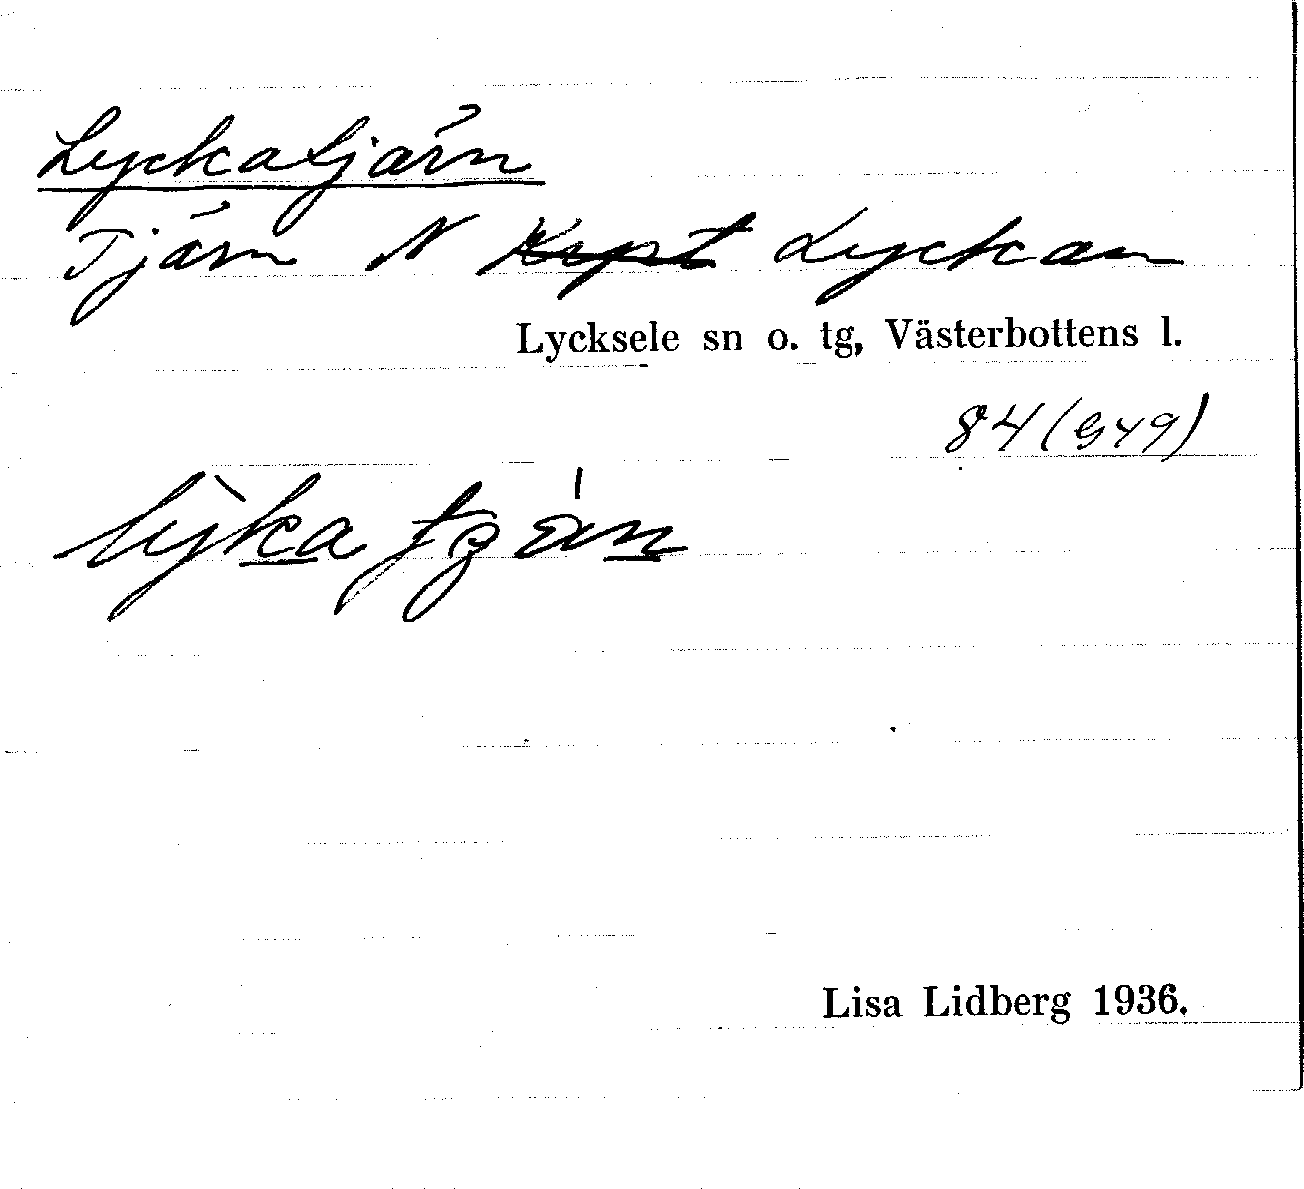 Lyckatjärn
Tjärn N Lyckan
Lycksele sn o. tg, Västerbottens l.
84 (949)
Lisa Lidberg 1936.